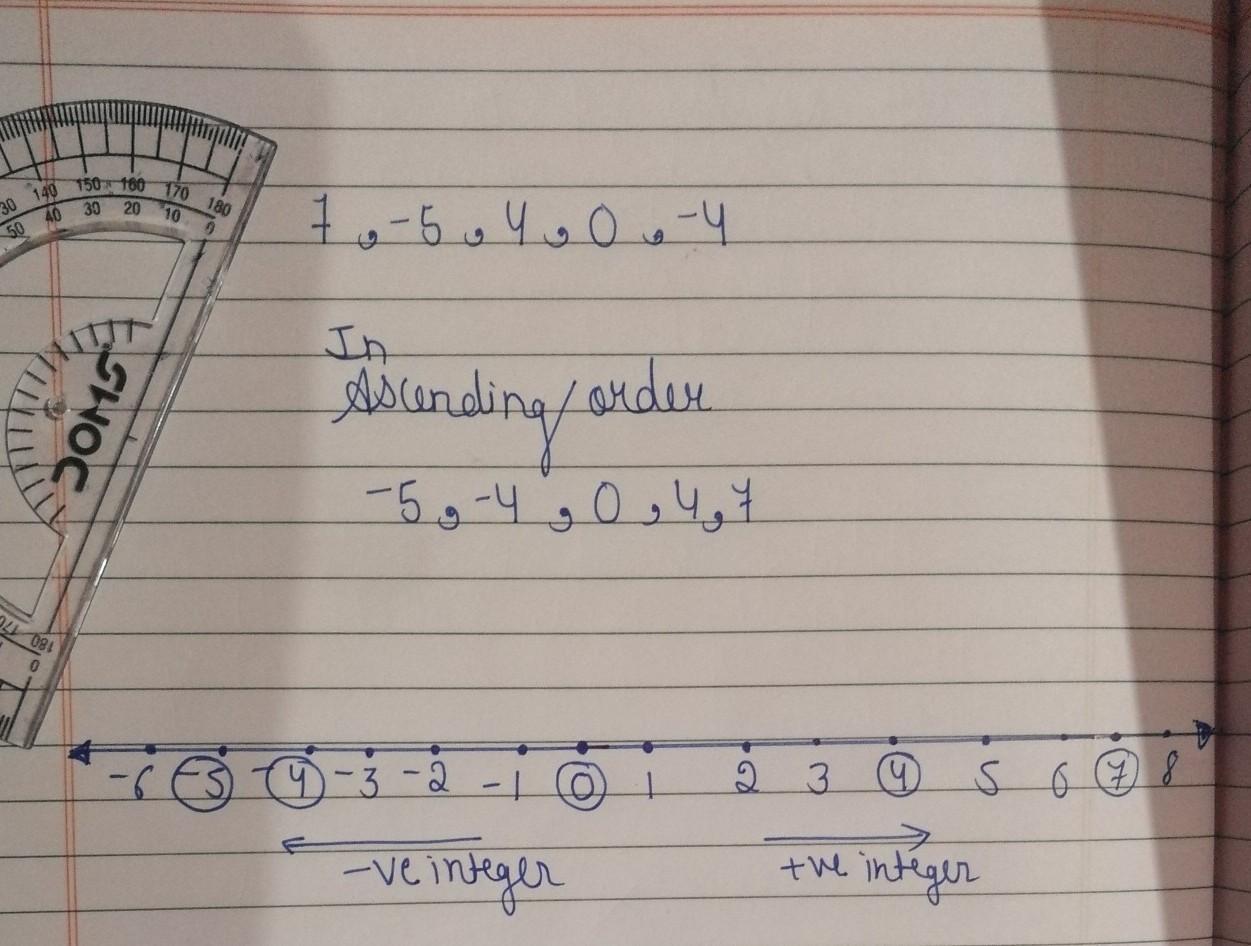 30 140 150 160 170 180
50 40 30 20 10 0
DOMS
170 180
0
7, -5, 4, 0, -4
In
Ascending order
-5, -4, 0, 4, 7
-6 -5 -4 -3 -2 -1 0 1 2 3 4 5 6 7 8
-ve integer
+ve integer